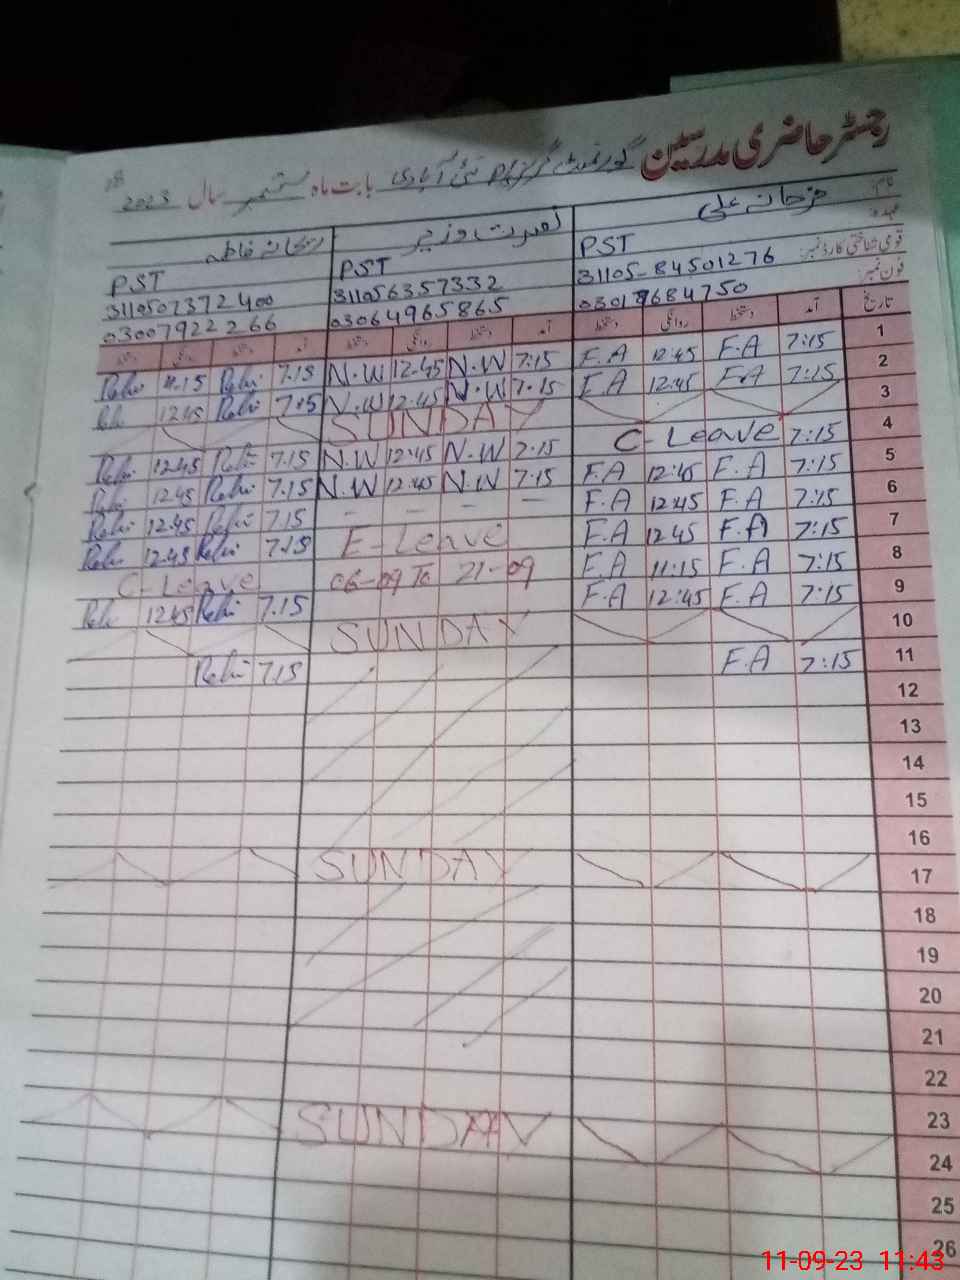 رجسٹر حاضری مدرسین گورنمنٹ گرلز نئی آبادی بابت ماہ ستمبر سال 2023
نام: فرحانہ علی نصرت وزیر ریحانہ فاطمہ
عہدہ: PST PST PST
قومی شناختی کارڈ نمبر: 31105-84501276 311056357332 3110507372400
فون نمبر: 03017684750 03064965865 03007922266
تاریخ آمد دستخط روانگی دستخط آمد دستخط روانگی دستخط آمد دستخط روانگی دستخط
1 7:15 F.A 12:45 F.A 7:15 N.W 12:45 N.W 7.15 Rehi 11.15 Rehi
2 7:15 F.A 12:45 F.A 7:15 N.W 12:45 N.W 7:15 Rehi 12:45 Rehi
3 SUNDAY
4 7:15 C-Leave 7:15 N.W 12:45 N.W 7.15 Rehi 12:45 Rehi
5 7:15 F.A 12:45 F.A 7:15 N.W 12:45 N.W 7.15 Rehi 12:45 Rehi
6 7:15 F.A 12:45 F.A - - - - 7.15 Rehi 12.45 Rehi
7 7:15 F.A 12:45 F.A E-Leave 7:15 Rehi 12.45 Rehi
8 7:15 F.A 11:15 F.A 06-09 To 21-09 C-Leave
9 7:15 F.A 12:45 F.A 7.15 Rehi 12:45 Rehi
10 SUNDAY
11 7:15 F.A 7.15 Rehi
12
13
14
15
16
17 SUNDAY
18
19
20
21
22
23
24 SUNDAY
25
26
11-09-23 11:43